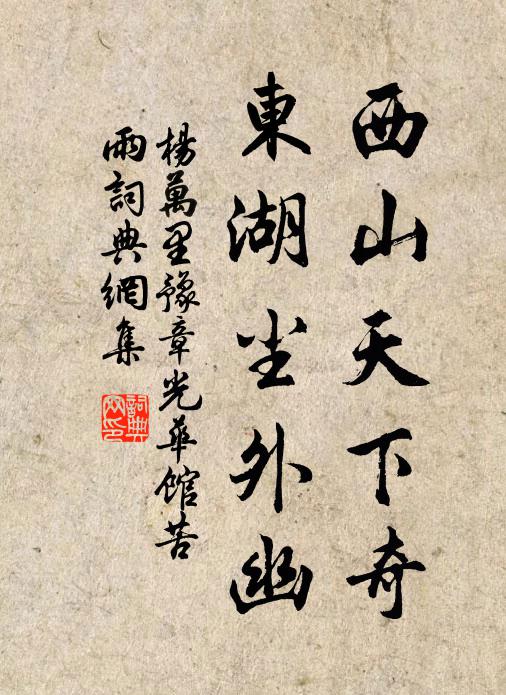 西山天下奇
東湖尘外幽
楊萬里豫章光華館苦
雨詞典網集
詞典网印